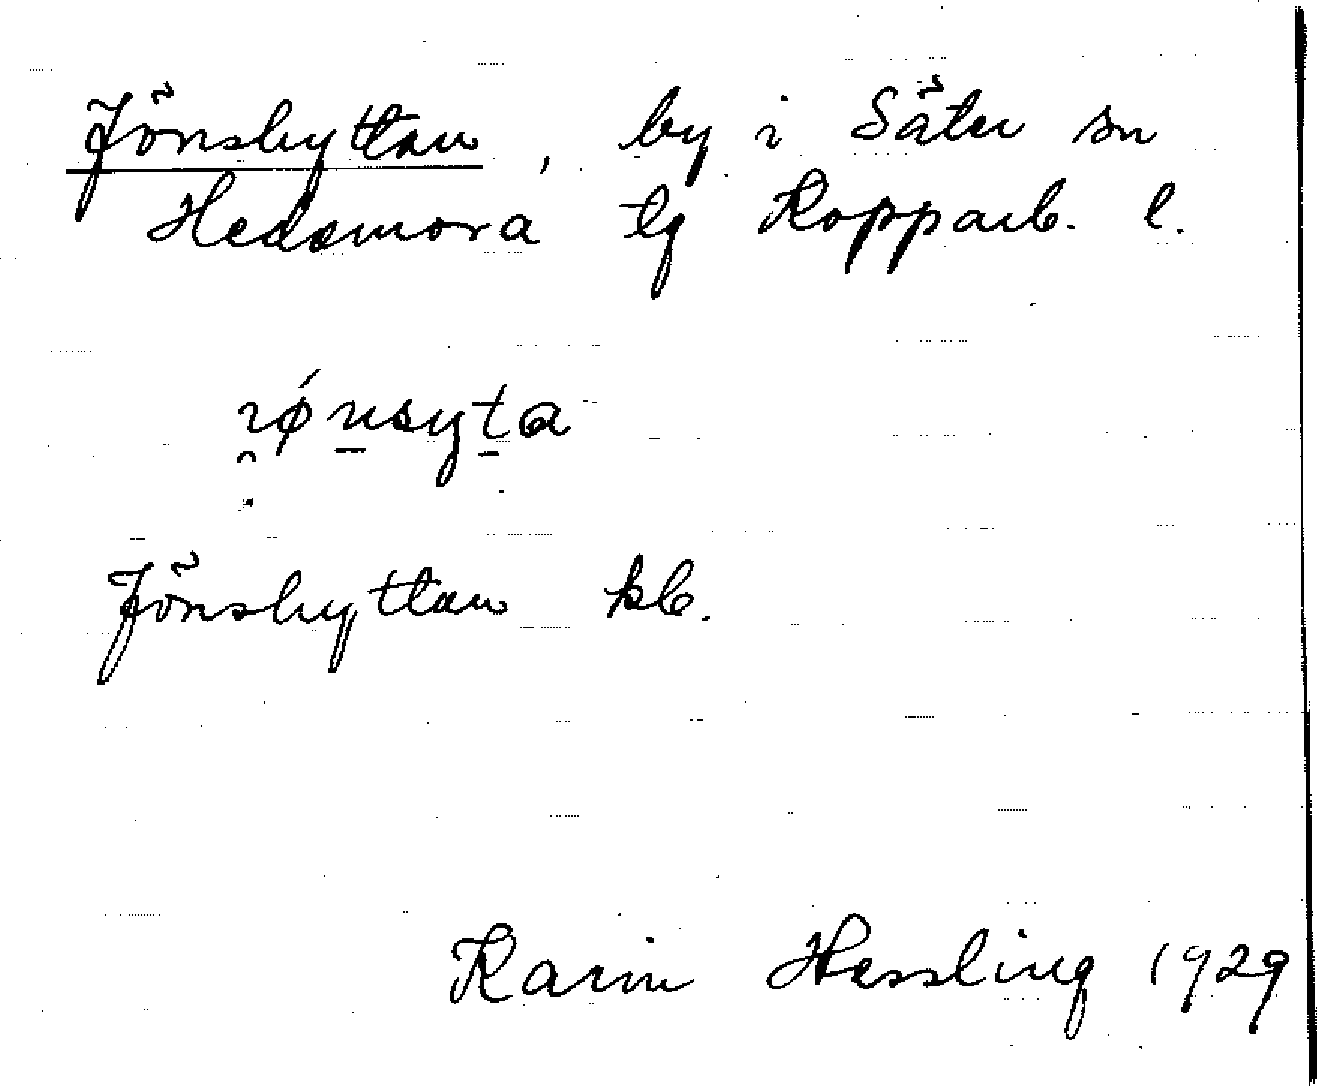 Jönshyttan, by i Säter sn
Hedemora tg Kopparb. l.
ı̯ǿn̠syt̠a
Jönshyttan kb.
Karin Hessling 1929